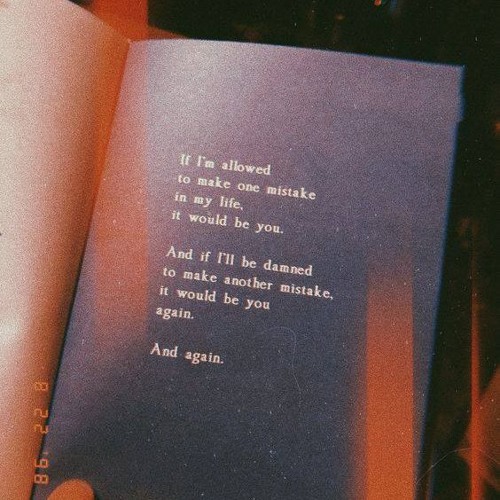 If I'm allowed
to make one mistake
in my life,
it would be you.
And if I'll be damned
to make another mistake,
it would be you
again.
And again.
8 22 '98